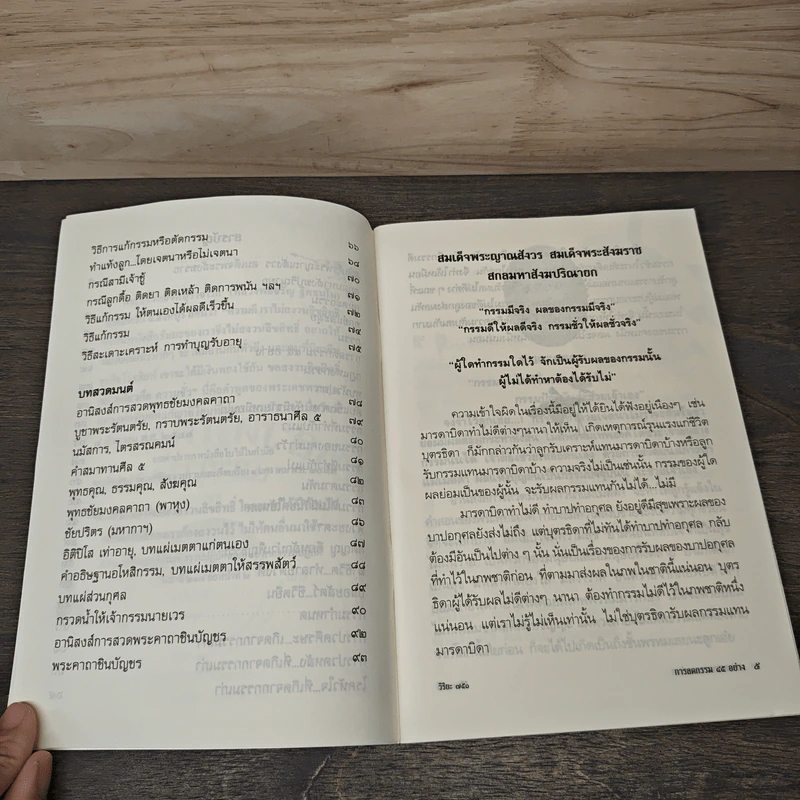 วิธีการแก้กรรมหรือตัดกรรม ๖๖
ทำแท้งลูก...โดยเจตนาหรือไม่เจตนา ๖๘
กรณีสามีเจ้าชู้ ๗๐
กรณีลูกดื้อ ติดยา ติดเหล้า ติดการพนัน ฯลฯ ๗๑
วิธีแก้กรรม ให้ตนเองได้ผลดีเร็วขึ้น ๗๒
วิธีแก้กรรม ๗๔
วิธีสะเดาะเคราะห์ การทำบุญรับอายุ ๗๕
บทสวดมนต์
อานิสงส์การสวดพุทธชัยมงคลคาถา ๗๘
บูชาพระรัตนตรัย, กราบพระรัตนตรัย, อาราธนาศีล ๕ ๗๙
นมัสการ, ไตรสรณคมน์ ๘๐
คำสมาทานศีล ๕ ๘๑
พุทธคุณ, ธรรมคุณ, สังฆคุณ ๘๒
พุทธชัยมงคลคาถา (พาหุง) ๘๓
ชัยปริตร (มหากาฯ) ๘๖
อิติปิโส เท่าอายุ, บทแผ่เมตตาแก่ตนเอง ๘๗
คำอธิษฐานอโหสิกรรม, บทแผ่เมตตาให้สรรพสัตว์ ๘๘
บทแผ่ส่วนกุศล ๘๙
กรวดน้ำให้เจ้ากรรมนายเวร ๙๐
อานิสงส์การสวดพระคาถาชินบัญชร ๙๒
พระคาถาชินบัญชร ๙๓
สมเด็จพระญาณสังวร สมเด็จพระสังฆราช
สกลมหาสังฆปริณายก
"กรรมมีจริง ผลของกรรมมีจริง"
"กรรมดีให้ผลดีจริง กรรมชั่วให้ผลชั่วจริง"
"ผู้ใดทำกรรมใดไว้ จักเป็นผู้รับผลของกรรมนั้น
ผู้ไม่ได้ทำหาต้องได้รับไม่"
ความเข้าใจผิดในเรื่องนี้มีอยู่ให้ได้ยินได้ฟังอยู่เนืองๆ เช่น
มารดาบิดาทำไม่ดีต่างๆนานาให้เห็น เกิดเหตุการณ์รุนแรงแก่ชีวิต
บุตรธิดา ก็มักกล่าวกันว่าลูกรับเคราะห์แทนมารดาบิดาบ้างหรือลูก
รับกรรมแทนมารดาบิดาบ้าง ความจริงไม่เป็นเช่นนั้น กรรมของผู้ใด
ผลย่อมเป็นของผู้นั้น จะรับผลกรรมแทนกันไม่ได้...ไม่มี
มารดาบิดาทำไม่ดี ทำบาปทำอกุศล ยังอยู่ดีมีสุขเพราะผลของ
บาปอกุศลยังส่งไม่ถึง แต่บุตรธิดาที่ไม่ทันได้ทำบาปทำอกุศล กลับ
ต้องมีอันเป็นไปต่าง ๆ นั้น นั่นเป็นเรื่องของการรับผลของบาปอกุศล
ที่ทำไว้ในภพชาติก่อน ที่ตามมาส่งผลในภพในชาตินี้แน่นอน บุตร
ธิดาผู้ได้รับผลไม่ดีต่างๆ นานา ต้องทำกรรมไม่ดีไว้ในภพชาติหนึ่ง
แน่นอน แต่เราไม่รู้ไม่เห็นเท่านั้น ไม่ใช่บุตรธิดารับผลกรรมแทน
มารดาบิดา
วิริยะ ๗๕๑ การลดกรรม ๔๕ อย่าง ๕